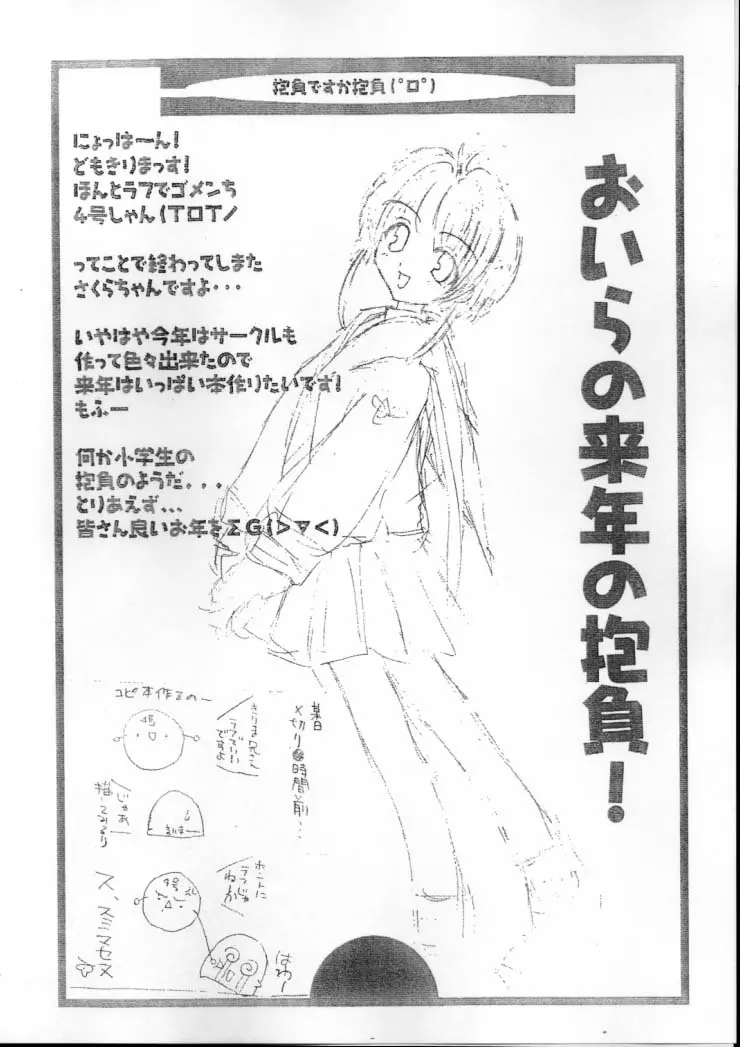 抱負ですか抱負(ﾟロﾟ)
おいらの来年の抱負！
にょっはーん！
どもきりまっす！
ほんとラフでゴメンち
4号しゃん(TロTノ
ってことで終わってしまた
さくらちゃんですよ・・・
いやはや今年はサークルも
作って色々出来たので
来年はいっぱい本作りたいです！
もふー
何か小学生の
抱負のようだ．．．
とりあえず．．．
皆さん良いお年をΣG(>▽<)
某日
〆切り●時間前…
コピ本作るのー
きりま兄っく
ラフでいい
ですよ
じゃあ
描いてみるり
ホントに
ラフじゃ
ねぇか
はわー
ス、スミマセヌ